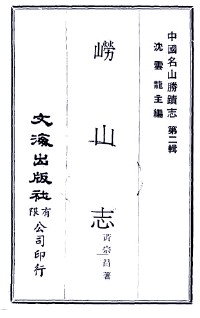 中國名山勝蹟志 第二輯
沈雲龍主編
嶗山志
黃宗昌著
文海出版社有限公司印行